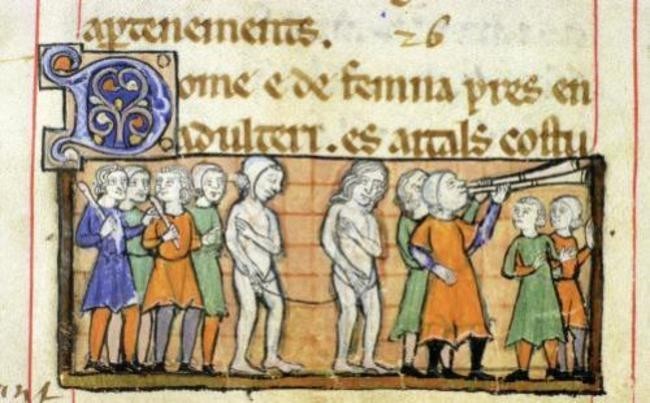 aꝑtenements. 26
Dome e de femna pres en
adulteri. es aitals costu